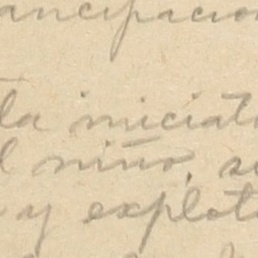 ancipacion
ta iniciat
l niño, su
y explot